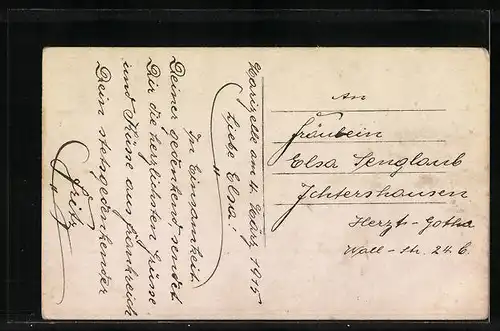 Marizelle am 4. März 1915
Liebe Elsa!
In Einsamkeit
Deiner gedenkend sendet
Dir die herzlichsten Grüsse
und Küsse aus Frankreich
Dein stetsgedenkender
Fritz
An
Fräulein
Elsa Senglaub
Ichtershausen
Herzt-Gotha
Wall-str. 24 b.